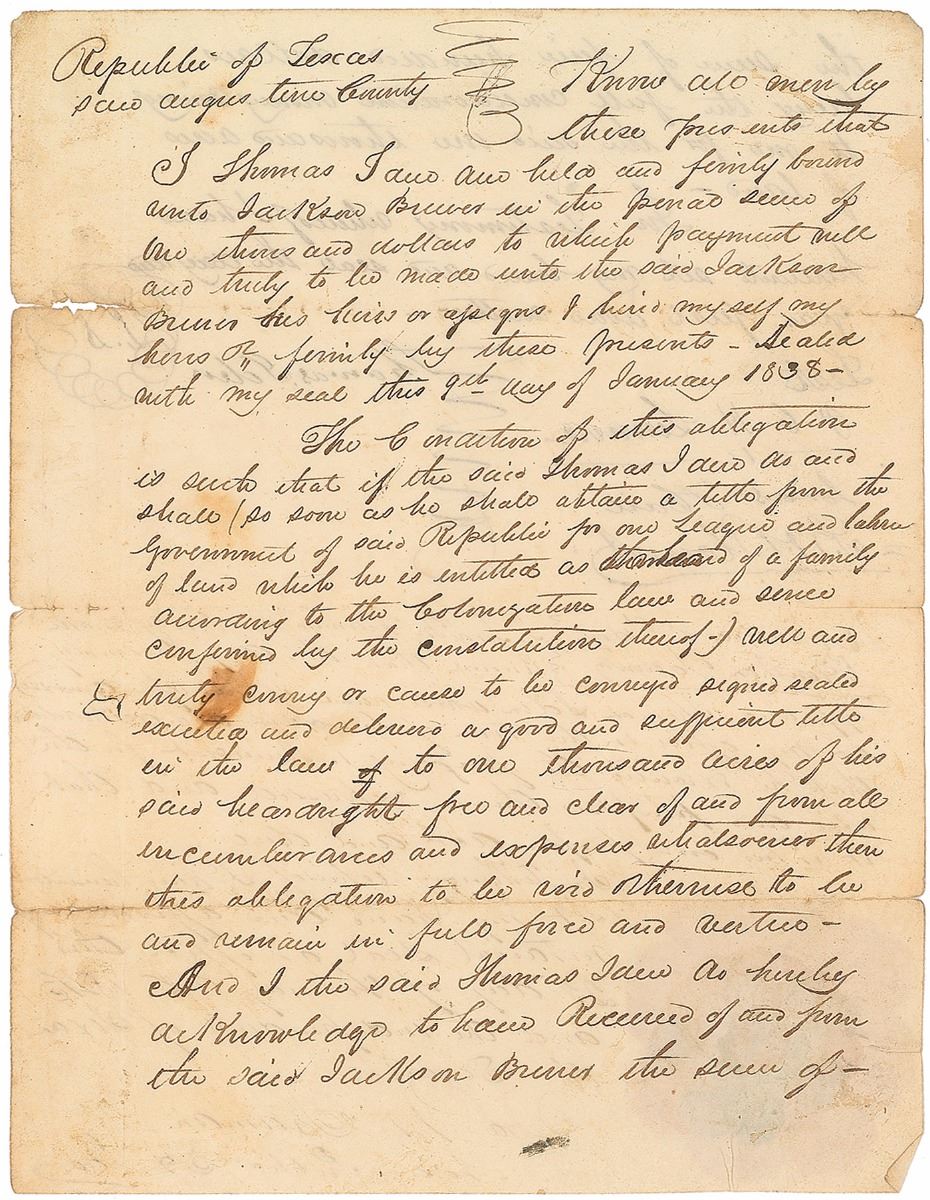 Republic of Texas
saw augustine County
Know all men by
these presents that
I Thomas Idew am held and firmly bound
unto Jackson Brewer in the penal sum of
One thousand dollars to which payment well
and truly to be made unto the said Jackson
Brewer his heirs or assigns I bind myself my
heirs &c firmly by these presents - Sealed
with my seal this 9th day of January 1838 -
The Condition of this obligation
is such that if the said Thomas Idew do and
shall (so soon as he shall obtain a title from the
Government of said Republic for one League and labor
of land which he is entitled as of a family
according to the Colonization law and sence
confirmed by the constatution thereof -) well and
truly convey or cause to be conveyd signed sealed
executed and delivered a good and sufficient title
in the law of to one thousand acres of his
said heardright free and clear of and from all
incumbrances and expenses whatsoever then
this oblegation to be void otherwise to be
and remain in full force and vertue -
And I the said Thomas Idew do hereby
acknowledge to have Received of and from
the said Jackson Brewer the sum of -